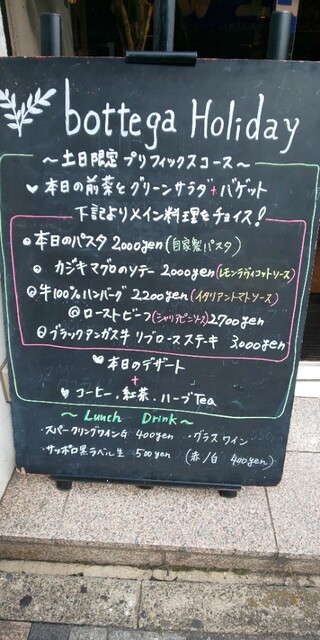 bottega Holiday
〜土日限定 プリフィックスコース〜
♥ 本日の前菜とグリーンサラダ+バゲット
下記よりメイン料理をチョイス!
◎本日のパスタ 2000yen(自家製パスタ)
◎ カジキマグロのソテー 2000yen(レモンラヴィゴットソース)
◎牛100%ハンバーグ 2200yen(イタリアントマトソース)
◎ローストビーフ(シャリアピンソース)2700yen
◎ブラックアンガス牛リブロースステーキ 3000yen
♥本日のデザート
+
♥コーヒー、紅茶、ハーブTea
〜Lunch Drink〜
・スパークリングワインG 400yen ・グラスワイン
・サッポロ黒ラベル生 500yen (赤/白 400yen)